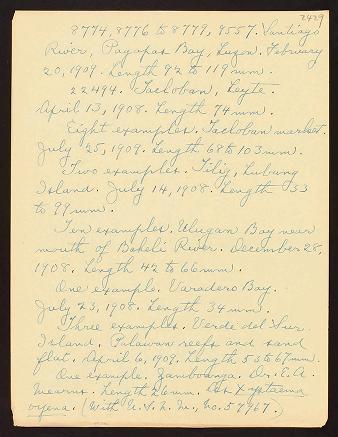 2429
8774, 8776 to 8779, 9557. Santiago
River, Pagapas Bay, Luzon. February
20, 1909. Length 92 to 119 mm.
22494. Tacloban, Leyte
April 13, 1908. Length 74 mm.
Eight examples. Tacloban market.
July 25, 1909. Length 68 to 103 mm.
Two examples. Tilig, Lubang
Island. July 14, 1908. Length 33
to 99 mm.
Ten examples. Ulugan Bay near
mouth of Baheli River. December 28,
1908. Length 42 to 66 mm.
One example. Varadero Bay.
July 23, 1908. Length 34 mm.
Three examples. Verde del Sur
Island. Palawan reefs and sand
flat. April 6, 1909. Length 53 to 67 mm.
One example. Zamboanga. Dr. E. A.
Mearns. Length 26 mm. As
oyena. (With U. S. N. M., No. 57967.)